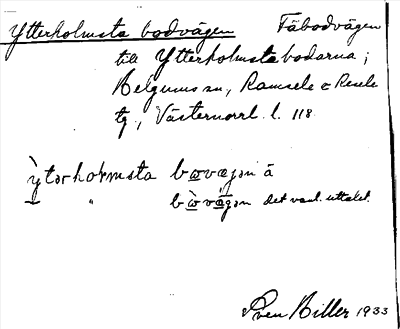 Ytterholmsta bodvägen Fäbodvägen
till Ytterholmstabodarna;
Helgums sn, Ramsele o Resele
tg, Västernorrl. l. 118
ỳtərholmsta bωvægən ä
" bὼvä̀gən det vanl. uttalet.
Sven Hiller 1933